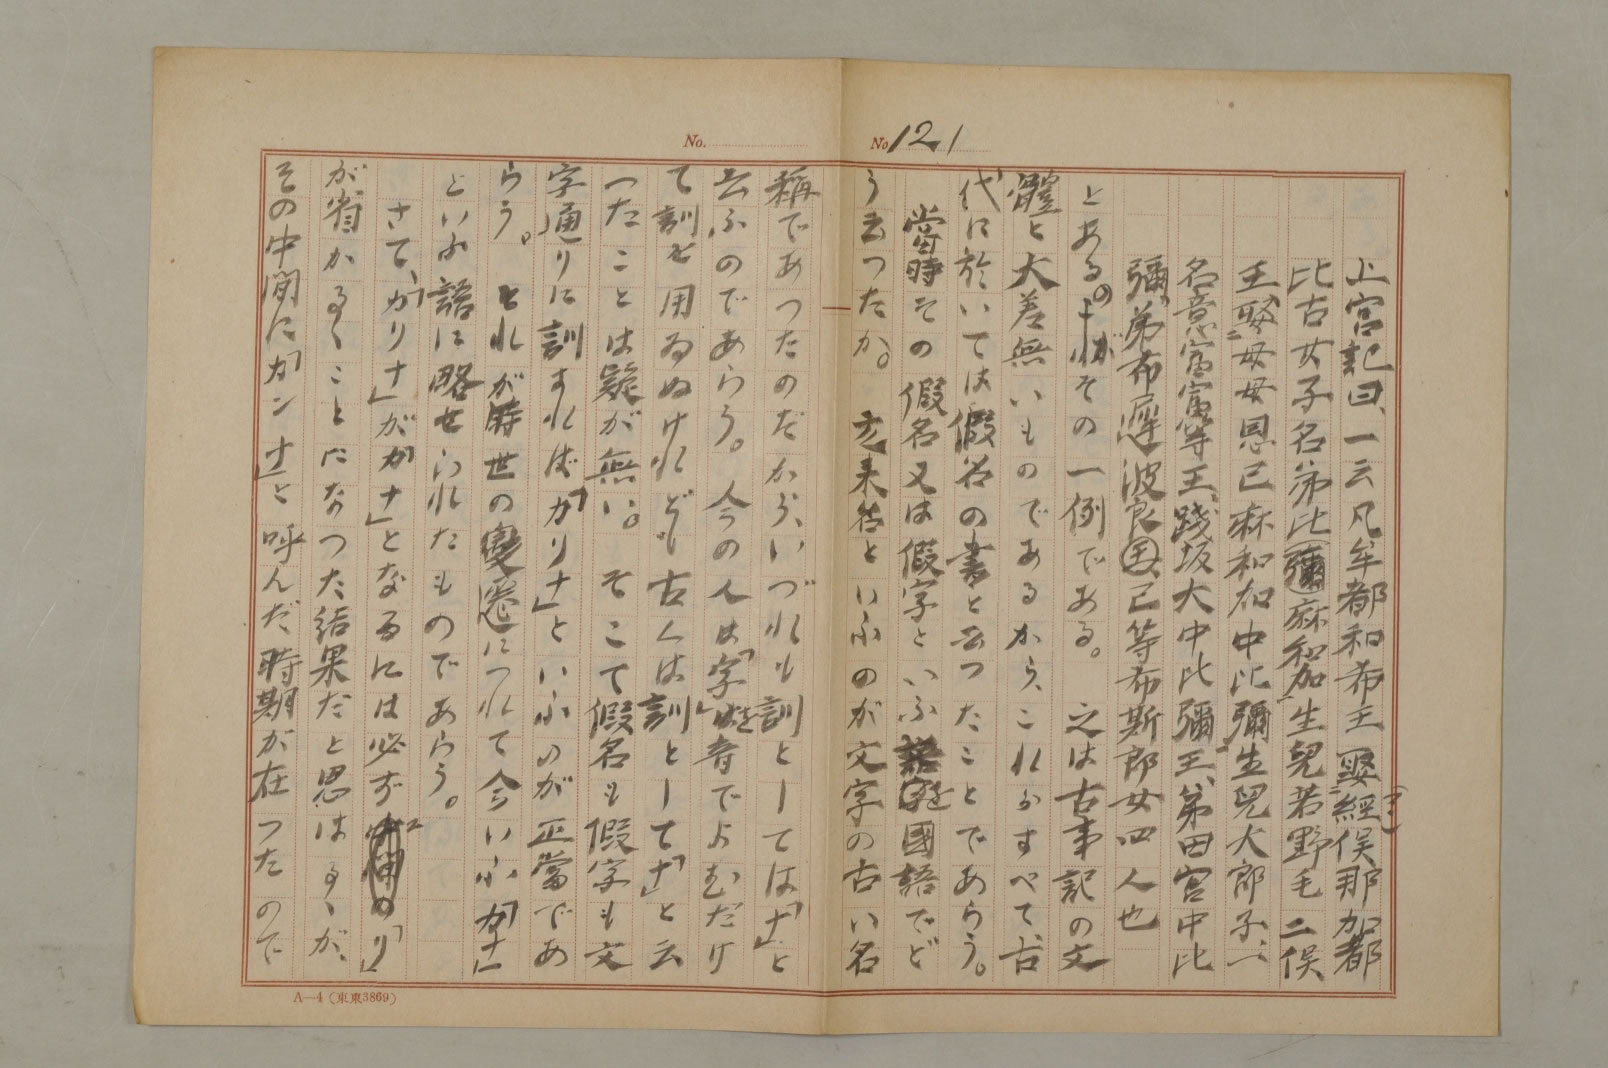 No. 121
上宮記曰、一云凡牟都和希王娶經俣那加都
比古女子名弟比彌麻和加、生兒若野毛二俣
王、娶母母恩己麻和加中比彌生兒大郎子、一
名意富富等王、踐坂大中比彌王、弟田宮中比
彌、弟布遲波良己等布斯郎女四人也
とある。のがその一例である。之は古事記の文
體と大差無いものであるから、これらすべて、古
代に於いては假名の書と云つたことであらう。
當時その假名又は假字といふ語を國語でど
う云つたか。 元来名といふのが文字の古い名
稱であつたのだから、いづれも訓としては「ナ」と
云ふのであらう。今の人は「字」を音でよむだけ
て訓を用ゐぬけれども古くは訓として「ナ」と云
つたことは疑が無い。そこで假名も假字も文
字通りに訓すれば「かりナ」といふのが正當であ
らう。それが時世の變遷につれて今いふ「かナ」
といふ語に略せられたものであらう。
さて、「かりナ」が「かナ」となるには必ず「り」
が省かるゝことになつた結果だと思はるゝが、
その中間に「かンナ」と呼んだ時期が在つたので
No.
A—4（東東3869）